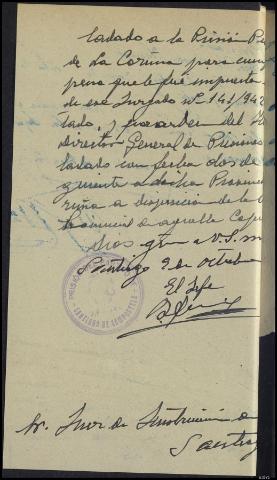 ladado a la Prisión P
de La Coruña para cum
pena que le fué impuesta
de ese Juzgado nº 141/942
tado, y por orden del
Director General de Prisiones
ladado con fecha dos de
a dicha Provin
ruña a disposición de la
Provincial de aquella Cap
Dios gue a V.S. m
Santiago 9 de octubre
El Jefe
SANTIAGO DE COMPOSTELA
Sr. Juez de Instrucción de
Santiag